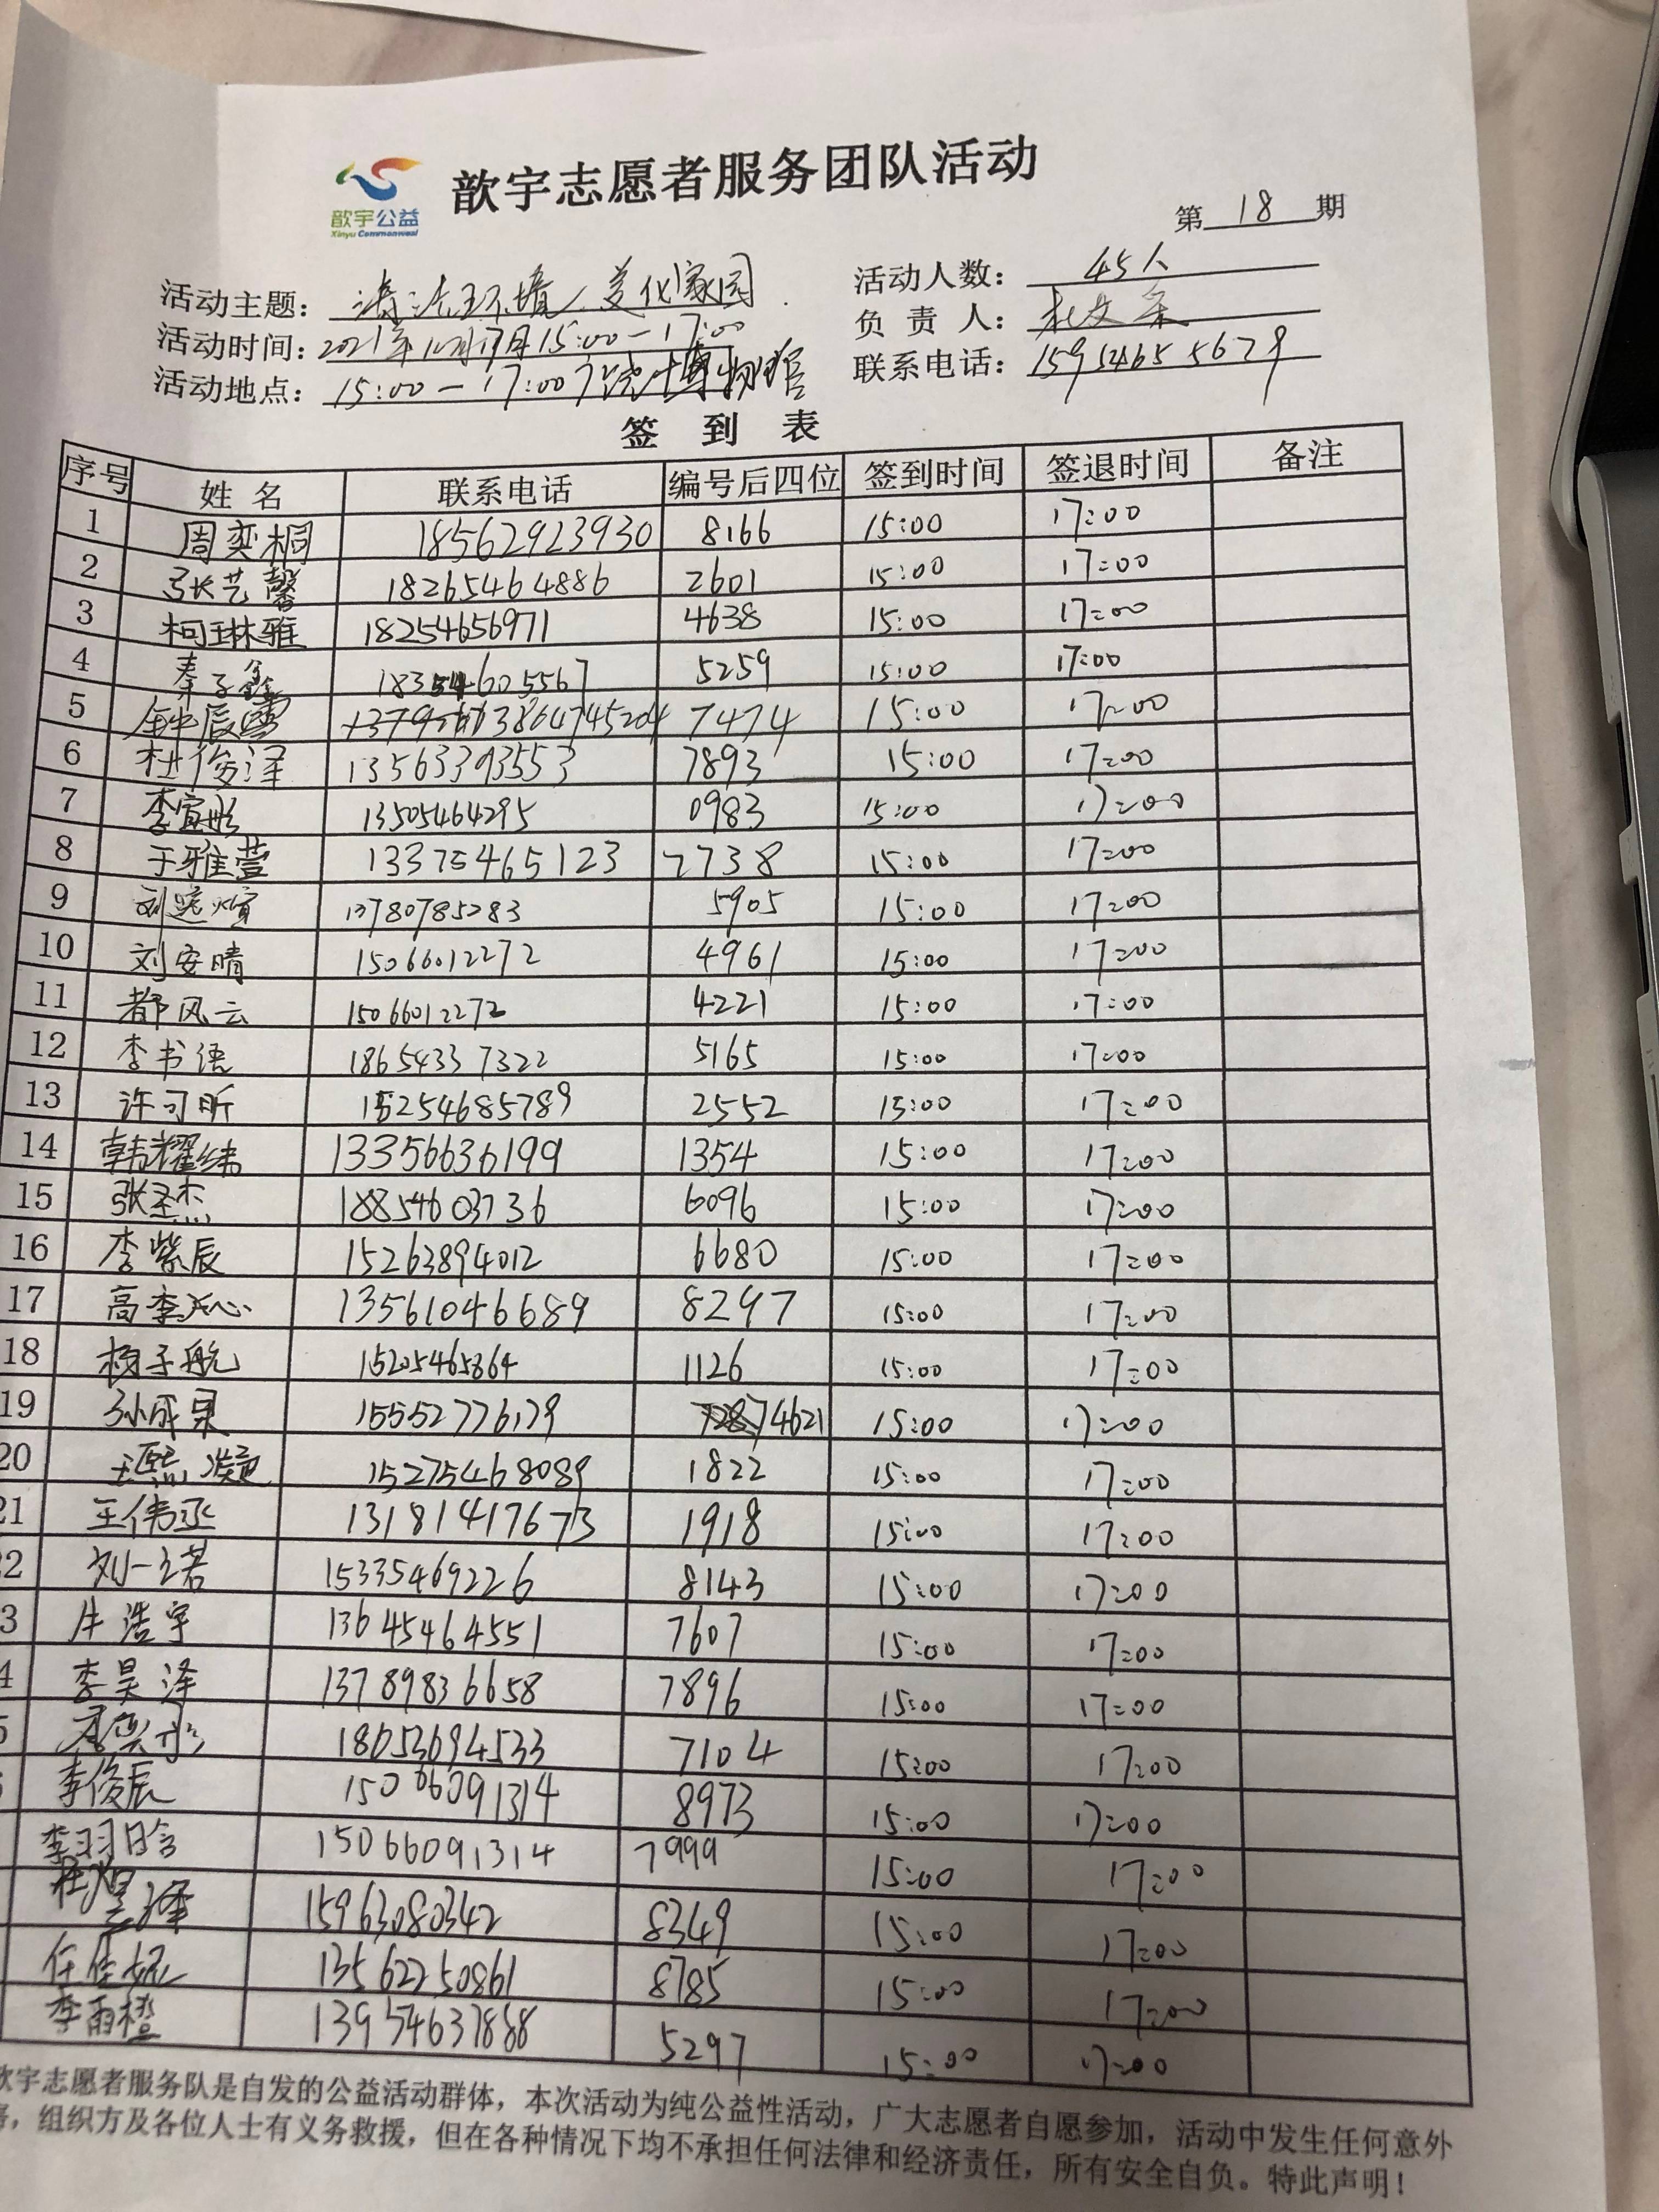 歆宇公益
Xinyu Commonweal
歆宇志愿者服务团队活动
第 18 期
活动主题: 清洁环境,美化家园
活动人数: 45人
活动时间: 2021年10月17日15:00-17:00
负责人: 杜文
活动地点: 15:00-17:00 广饶博物馆
联系电话: 15954655679
签 到 表
序号 姓名 联系电话 编号后四位 签到时间 签退时间 备注
1 周奕桐 18562923930 8166 15:00 17:00
2 张艺馨 18265464886 2601 15:00 17:00
3 柯琳雅 18254656971 4638 15:00 17:00
4 秦子鑫 18354605567 5259 15:00 17:00
5 钟辰雪 13864745204 7474 15:00 17:00
6 杜俊泽 13563393553 7893 15:00 17:00
7 李宜彤 13505464295 0983 15:00 17:00
8 于雅萱 13375465123 7738 15:00 17:00
9 刘 13780785283 5905 15:00 17:00
10 刘安晴 15066012272 4961 15:00 17:00
11 都风云 15066012272 4221 15:00 17:00
12 李书语 18654337322 5165 15:00 17:00
13 许可昕 15254685789 2552 15:00 17:00
14 韩耀纬 13356636199 1354 15:00 17:00
15 张圣杰 18854603736 6096 15:00 17:00
16 李紫辰 15263894012 6680 15:00 17:00
17 高李沁心 13561046689 8297 15:00 17:00
18 杨子航 15205465864 1126 15:00 17:00
19 孙成果 15552776179 4621 15:00 17:00
20 王熙凝 15275468089 1822 15:00 17:00
21 王伟丞 13181417673 1918 15:00 17:00
22 刘一若 15335469226 8143 15:00 17:00
3 牛浩宇 13645464551 7607 15:00 17:00
4 李昊泽 13789836658 7896 15:00 17:00
5 18053694533 7104 15:00 17:00
李俊辰 15066091314 8973 15:00 17:00
李羽晗 15066091314 7999 15:00 17:00
15963080342 8349 15:00 17:00
任佳妮 13562250861 8785 15:00 17:00
李雨橙 13954637888 5297 15:00 17:00
歆宇志愿者服务队是自发的公益活动群体，本次活动为纯公益性活动，广大志愿者自愿参加，活动中发生任何意外
，组织方及各位人士有义务救援，但在各种情况下均不承担任何法律和经济责任，所有安全自负。特此声明！